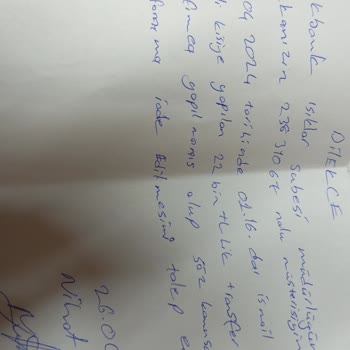 DİLEKÇE
kbank Işıklar Şubesi müdürlüğün
kanızın nolu müşterisiyim
04 2024 tarihinde 01.16.da ismail
kişiye yapılan 22 bin TL lik transfer
yapılmamış olup söz konusu
iade edilmesini talep e
26.0
Nihat